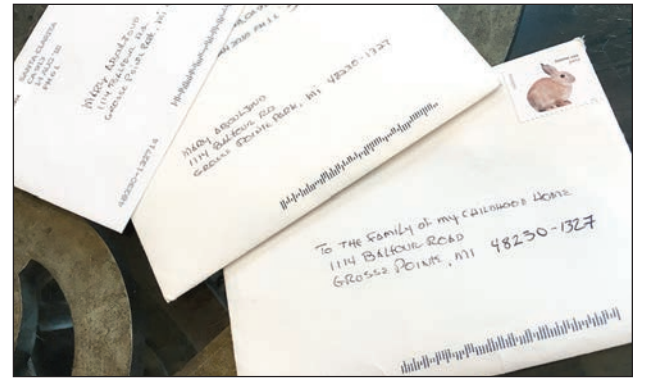 SANTA CLARITA
CA 913
MARY ABOULJOUD
1114 BALFOUR RD.
GROSSE POINTE PARK, MI
48230-132714
MARY ABOULJOUD
1114 BALFOUR RD
GROSSE POINTE PARK, MI 48230-1327
TO THE FAMILY OF MY CHILDHOOD HOME
1114 BALFOUR ROAD
GROSSE POINTE, MI 48230-1327